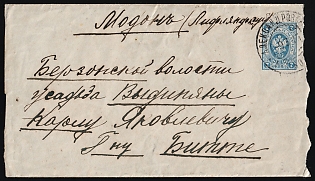 Модонъ (Лифляндской)
Берзонской волости
усадьба Выдиняны
Карлу Яковлевичу
Гну Битте